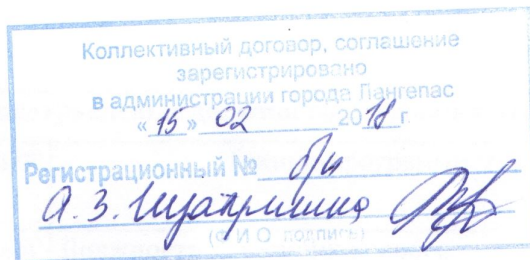 Коллективный договор, соглашение
зарегистрировано
в администрации города Лангепас
«15» 02 2018 г.
Регистрационный № б/н
А. З.
(Ф И О подпись)